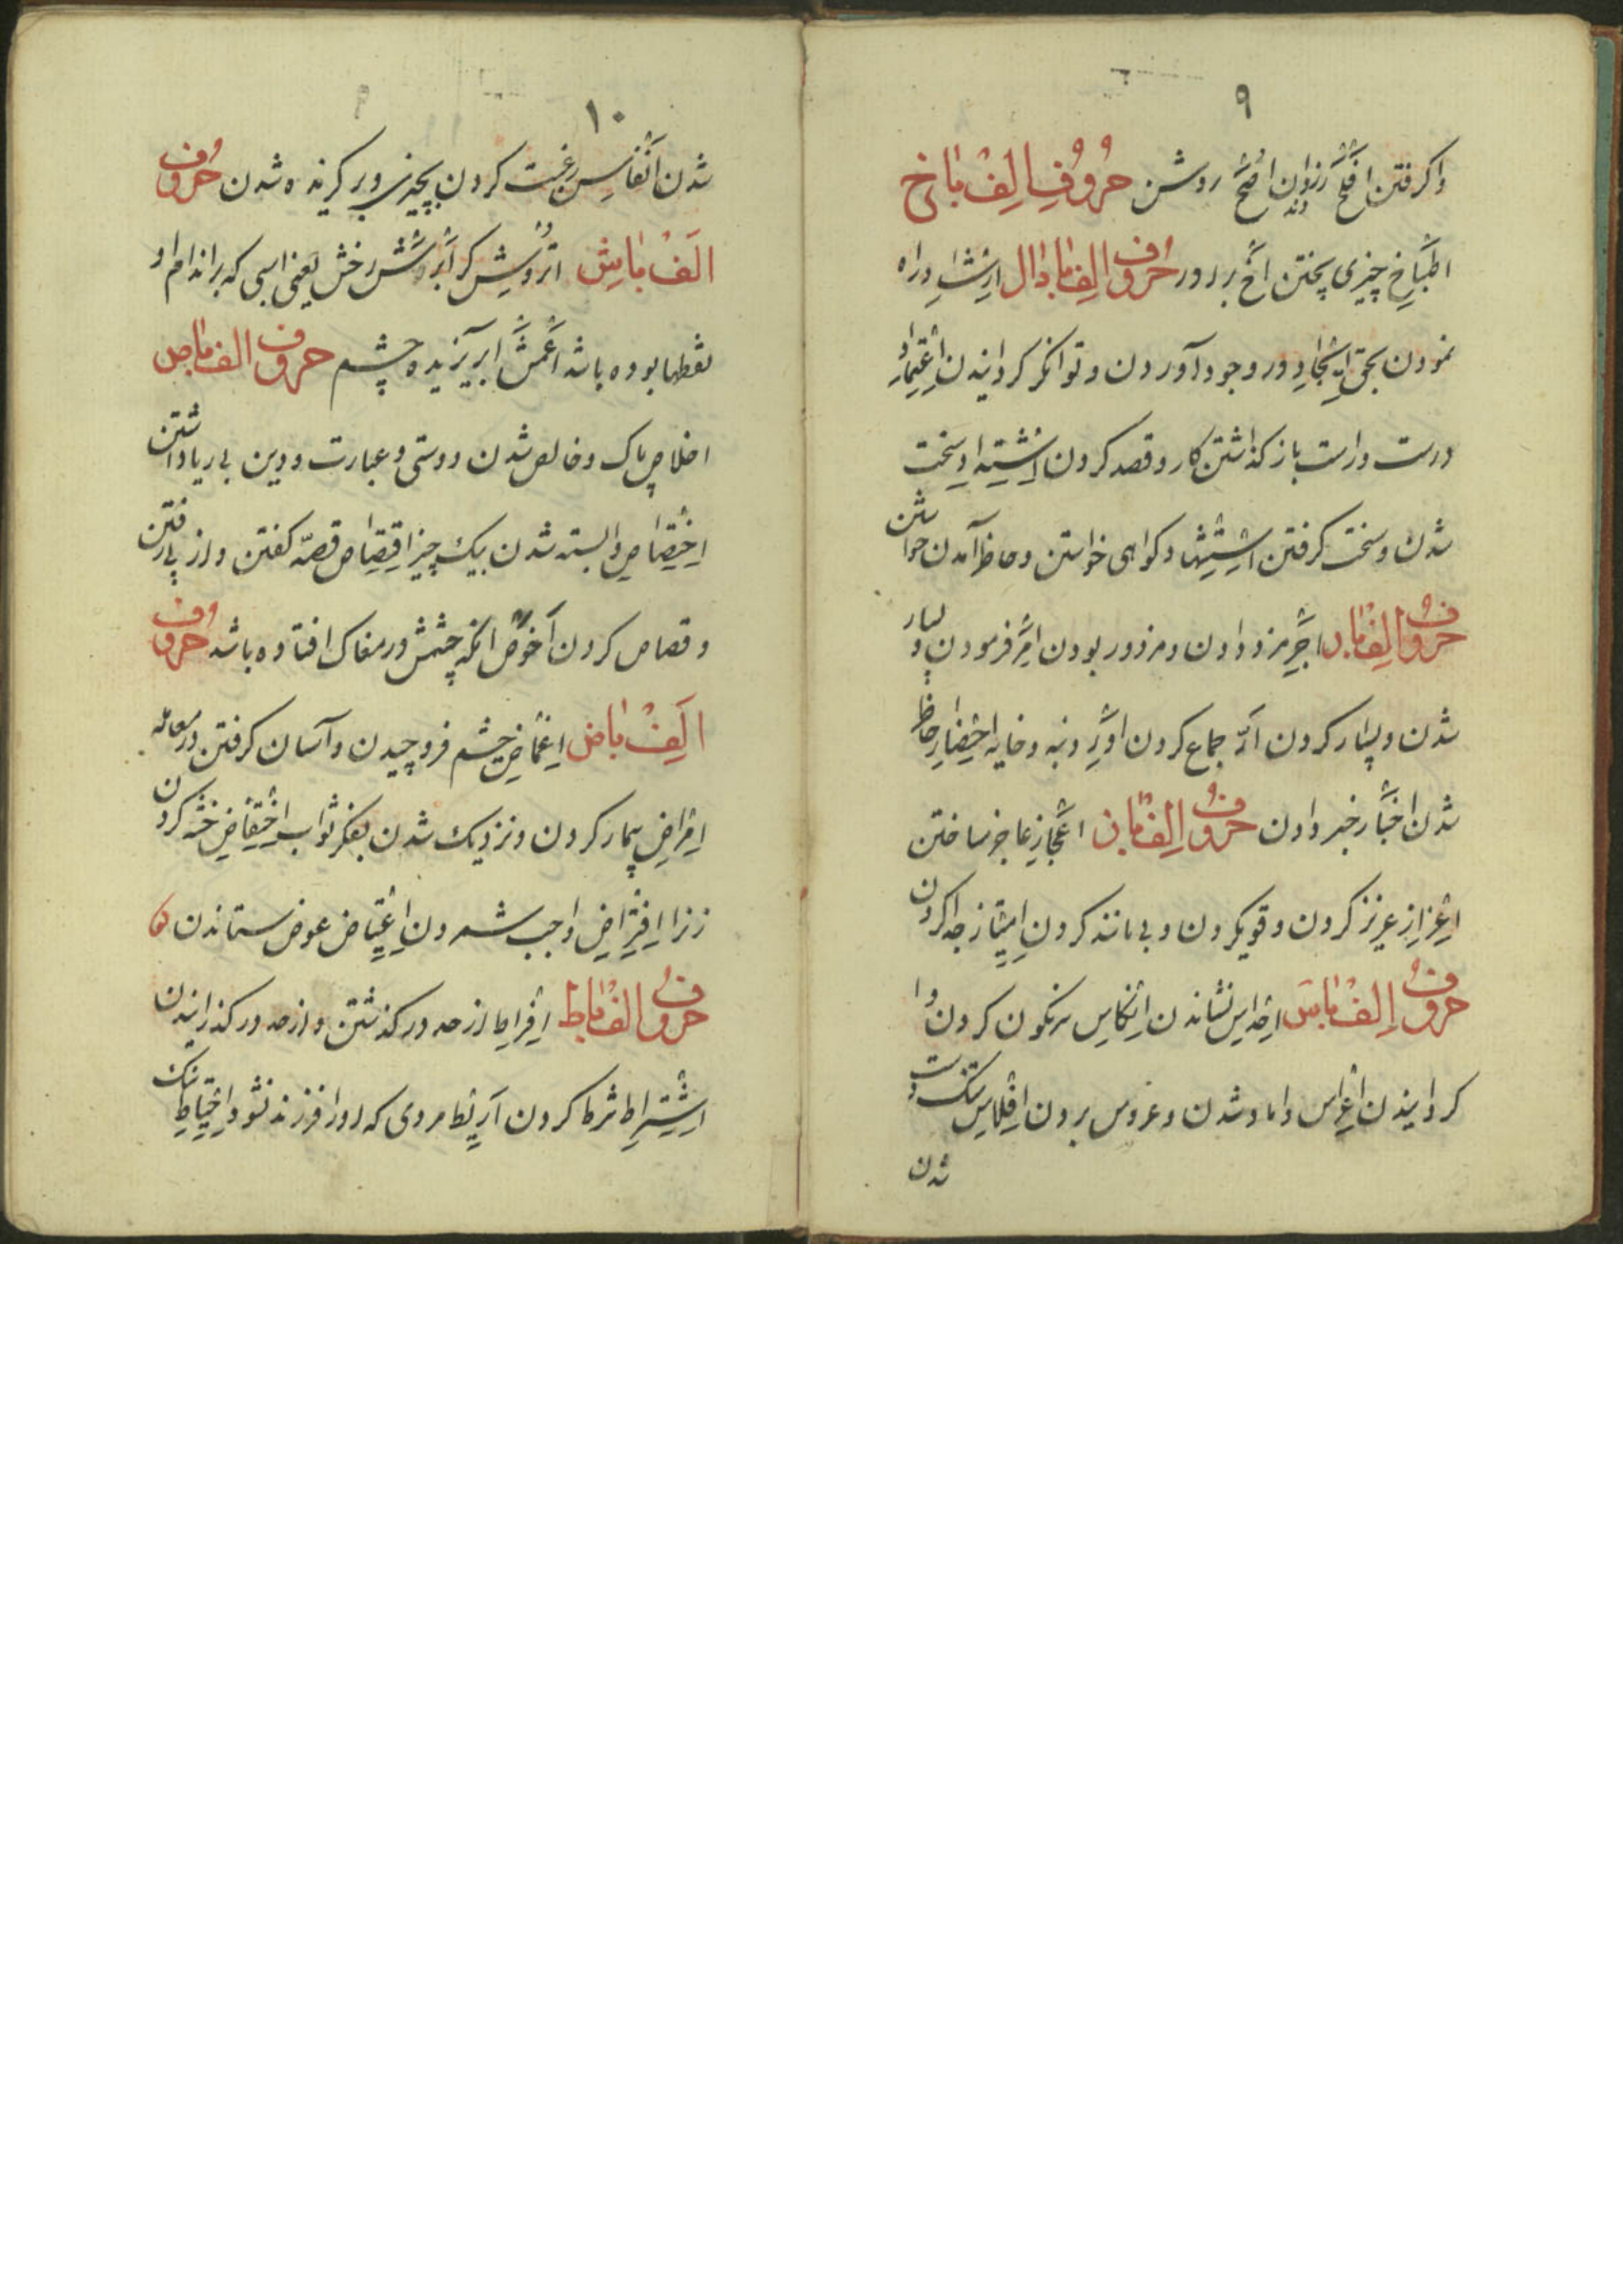 ۹
واکرفتن افلح رزوان دند اضح روشن حروف الف با خ
اطباخ چیزی پختن اخ برادر حروف الف با دال ارشاد راه
نمودن بحق ایجاد در وجود آوردن و توانکر کردانیدن اعتماد
درست و راست باز کذاشتن کار و قصد کردن اشتداد سخت
شدن و سخت کرفتن استشهاد کواهی خواستن و حاضر آمدن خواستن
حروف الف با ر اجر مزد دادن و مزدور بودن امر فرمودن و بسیار
شدن و بسیار کردن ار جماع کردن اور دنبه و خایه احضار حاضر
شدن اخبار خبر دادن حروف الف با ز اعجاز عاجز ساختن
اعزاز عزیز کردن و قوی کردن و بی مانند کردن امتیاز جدا کردن
حروف الف با س اجلاس نشاندن انکاس سرنکون کردن وا
کردانیدن اعراس داماد شدن و عروس بردن افلاس تنک دست
شدن
۱۰
شدن انفاس رغبت کردن بچیزی و بر کزیده شدن حروف
الف با ش اتروش کر ابرش رخش یعنی اسبی که بر اندام او
نقطها بوده باشد اعمش ابریزیده چشم حروف الف با ص
اخلاص پاک و خالص شدن دوستی و عبارت و دین بی ریا داشتن
اختصاص وابسته شدن بیک چیز اقتصاص قصّه کفتن و از پی رفتن
و قصاص کردن اخوص انکه چشمش در مغاک افتاده باشد حروف
الف با ض اغماض چشم فرو چیدن و آسان کرفتن در معامله
امراض بیمار کردن و نزدیک شدن بفکر ثواب اختفاض ختنه کردن
زنرا افتراض واجب شمردن اعتیاض عوض ستاندن
حروف الف با ط افراط از حد در کذشتن و از حد در کذرانیدن
اشتراط شرط کردن اریط مردی که او را فرزند نشود احتیاط نیک